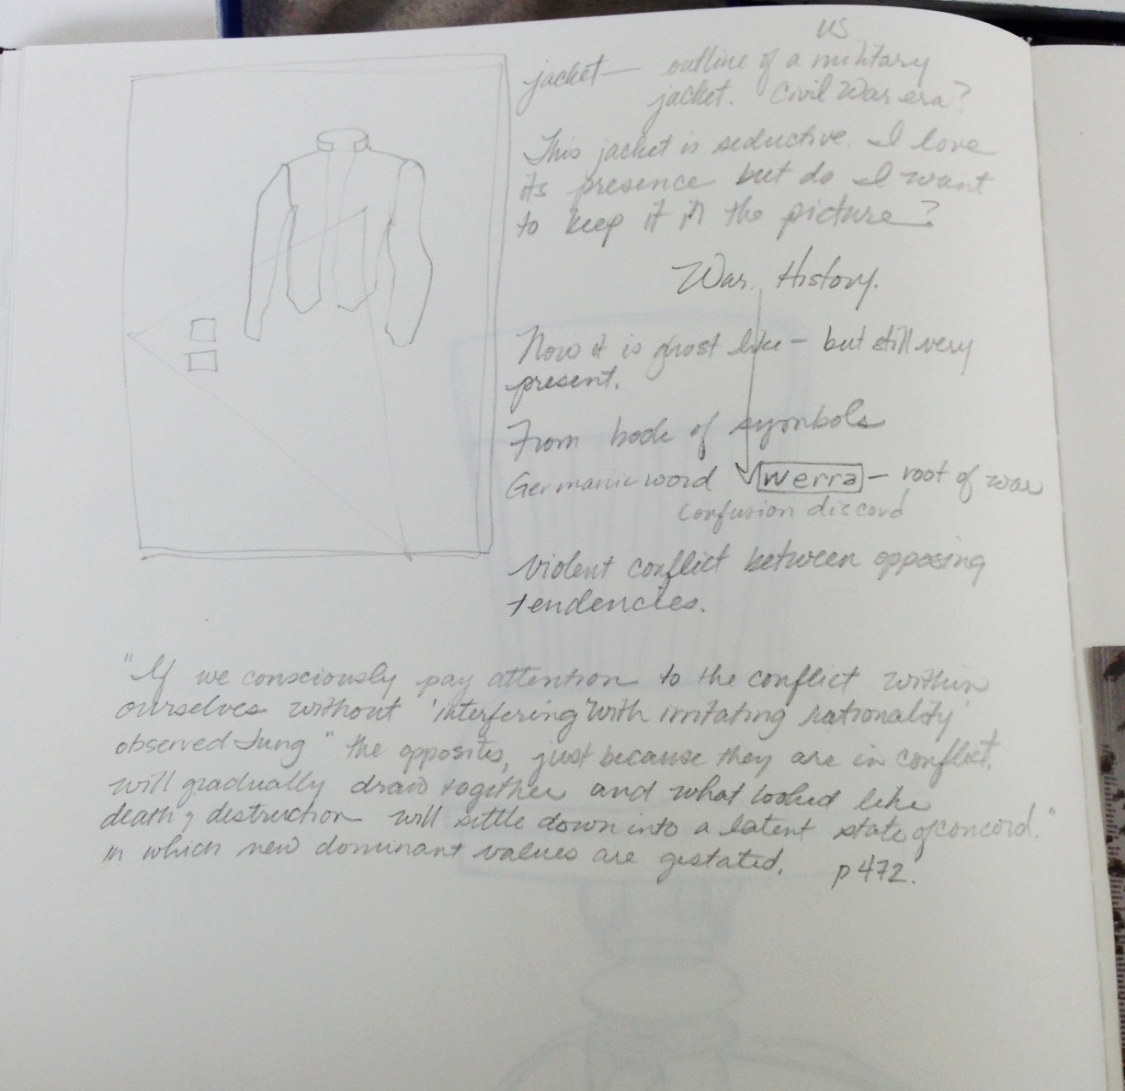 US
jacket — outline of a military
jacket. Civil War era?
This jacket is seductive. I love
its presence but do I want
to keep it in the picture?
War. History.
Now it is ghost like – but still very
present.
From book of symbols
Germanic word werra – root of war
Confusion discord
violent conflict between opposing
tendencies.
"If we consciously pay attention to the conflict within
ourselves without 'interfering with irritating rationality'
observed Jung "the opposites, just because they are in conflict,
will gradually draw together and what looked like
death & destruction will settle down into a latent state of concord."
in which new dominant values are gestated. p 472.